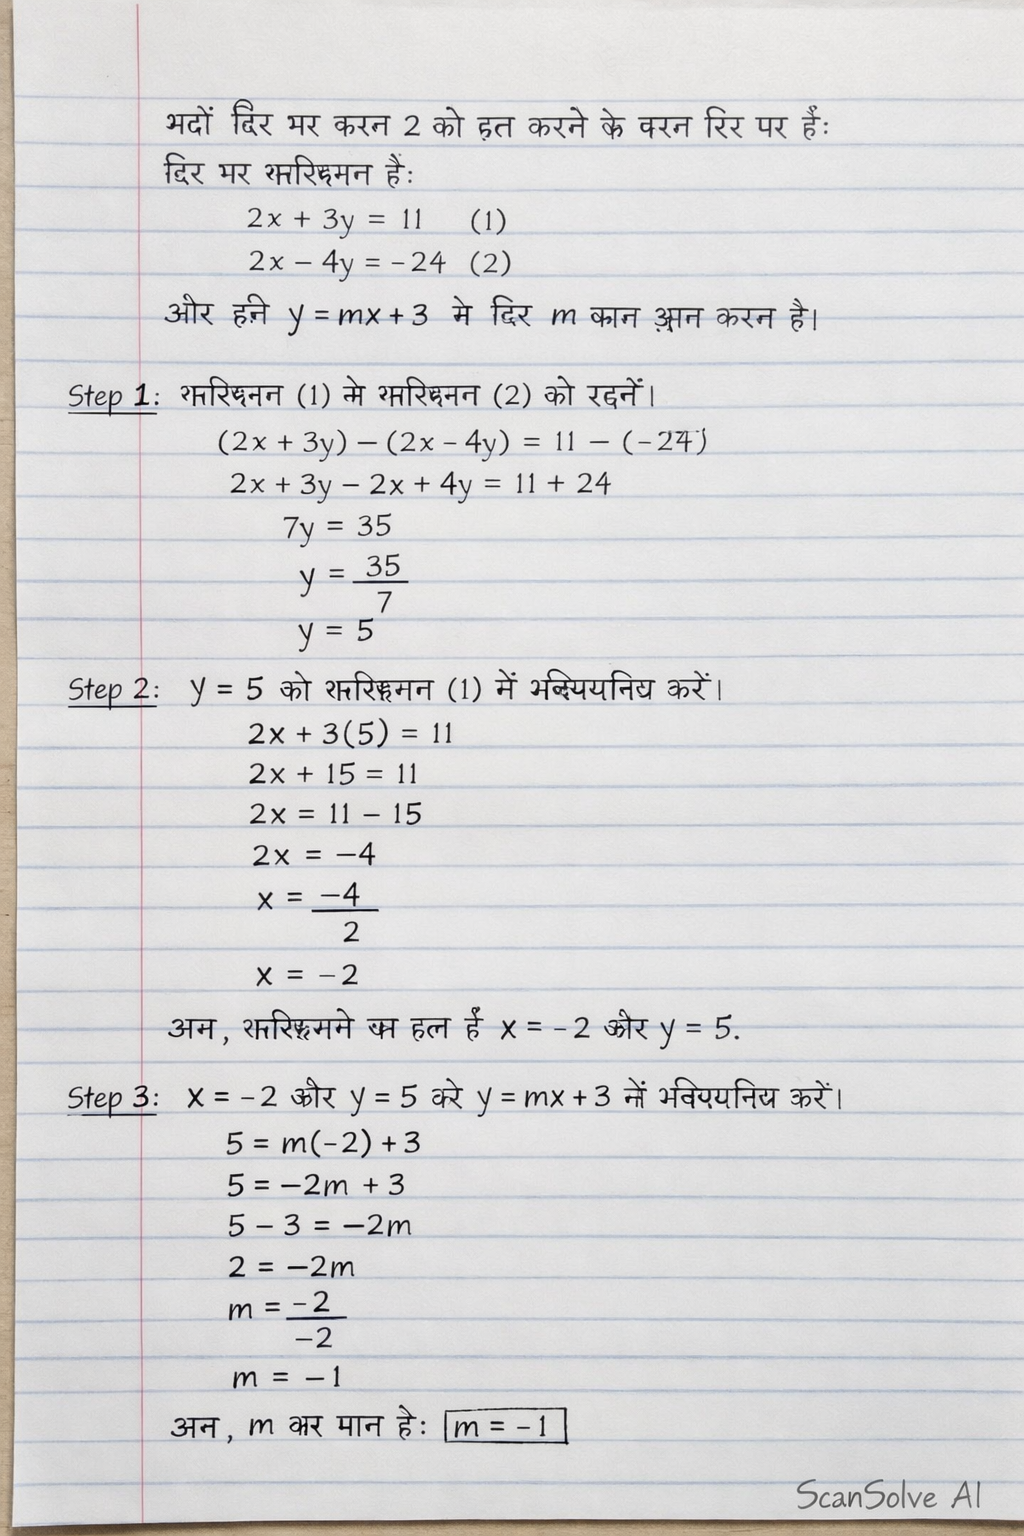 भदों दिर भर करन 2 को हत करने के वरन रिर पर हैं:
दिर भर हैं:
2x + 3y = 11 (1)
2x − 4y = −24 (2)
और हने y = mx + 3 मे दिर m कान करन है।
Step 1: (1) मे (2) को रदनें।
(2x + 3y) − (2x − 4y) = 11 − (−24)
2x + 3y − 2x + 4y = 11 + 24
7y = 35
y = 35/7
y = 5
Step 2: y = 5 को (1) में करें।
2x + 3(5) = 11
2x + 15 = 11
2x = 11 − 15
2x = −4
x = −4/2
x = −2
अन, हल हैं x = −2 और y = 5.
Step 3: x = −2 और y = 5 करे y = mx + 3 करें।
5 = m(−2) + 3
5 = −2m + 3
5 − 3 = −2m
2 = −2m
m = −2/−2
m = −1
अन, m कर मान है: m = −1
ScanSolve AI